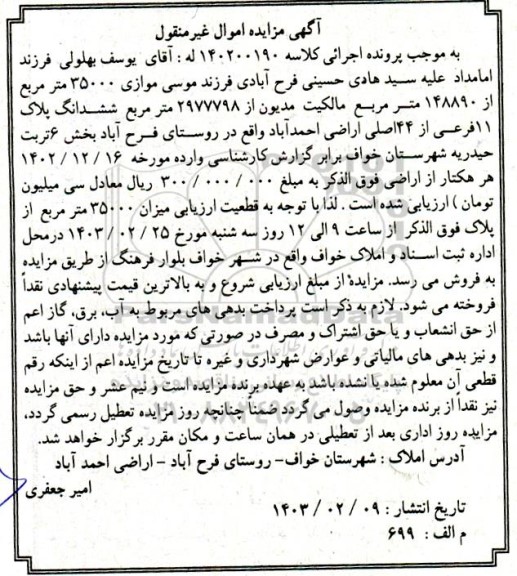 آگهی مزایده اموال غیرمنقول
به موجب پرونده اجرائی کلاسه ۱۴۰۲۰۰۱۹۰ له : آقای یوسف بهلولی فرزند
امامداد علیه سید هادی حسینی فرح آبادی فرزند موسی موازی ۳۵۰۰۰ متر مربع
از ۱۴۸۸۹۰ متر مربع مالکیت مدیون از ۲۹۷۷۷۹۸ متر مربع ششدانگ پلاک
۱۱فرعی از ۴۴اصلی اراضی احمدآباد واقع در روستای فرح آباد بخش ۶تربت
حیدریه شهرستان خواف برابر گزارش کارشناسی وارده مورخه ۱۶ / ۱۲ / ۱۴۰۲
هر هکتار از اراضی فوق الذکر به مبلغ ۰۰۰ / ۰۰۰ / ۳۰۰ ریال معادل سی میلیون
تومان ) ارزیابی شده است . لذا با توجه به قطعیت ارزیابی میزان ۳۵۰۰۰ متر مربع از
پلاک فوق الذکر از ساعت ۹ الی ۱۲ روز سه شنبه مورخ ۲۵ / ۰۲ / ۱۴۰۳ درمحل
اداره ثبت اسناد و املاک خواف واقع در شهر خواف بلوار فرهنگ از طریق مزایده
به فروش می رسد. مزایده از مبلغ ارزیابی شروع و به بالاترین قیمت پیشنهادی نقداً
فروخته می شود. لازم به ذکر است پرداخت بدهی های مربوط به آب، برق، گاز اعم
از حق انشعاب و یا حق اشتراک و مصرف در صورتی که مورد مزایده دارای آنها باشد
و نیز بدهی های مالیاتی و عوارض شهرداری و غیره تا تاریخ مزایده اعم از اینکه رقم
قطعی آن معلوم شده یا نشده باشد به عهده برنده مزایده است و نیم عشر و حق مزایده
نیز نقداً از برنده مزایده وصول می گردد ضمناً چنانچه روز مزایده تعطیل رسمی گردد،
مزایده روز اداری بعد از تعطیلی در همان ساعت و مکان مقرر برگزار خواهد شد.
آدرس املاک : شهرستان خواف- روستای فرح آباد - اراضی احمد آباد
امیر جعفری
تاریخ انتشار : ۰۹ / ۰۲ / ۱۴۰۳
م الف : ۶۹۹
ParsNamadData